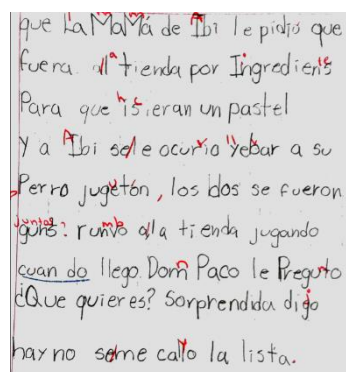 que La MaMá de Ibi le pidio que
fuera all tienda por Ingrediens
Para que isieran un pastel
Y a Ibi sele ocurio Yebar a su
Perro jugetón, los dos se fueron
guns: runvo alla tienda jugando
cuan do llego Dom Paco le Preguto
¿Que quieres? Sorprendida digo
hay no seme callo la lista.